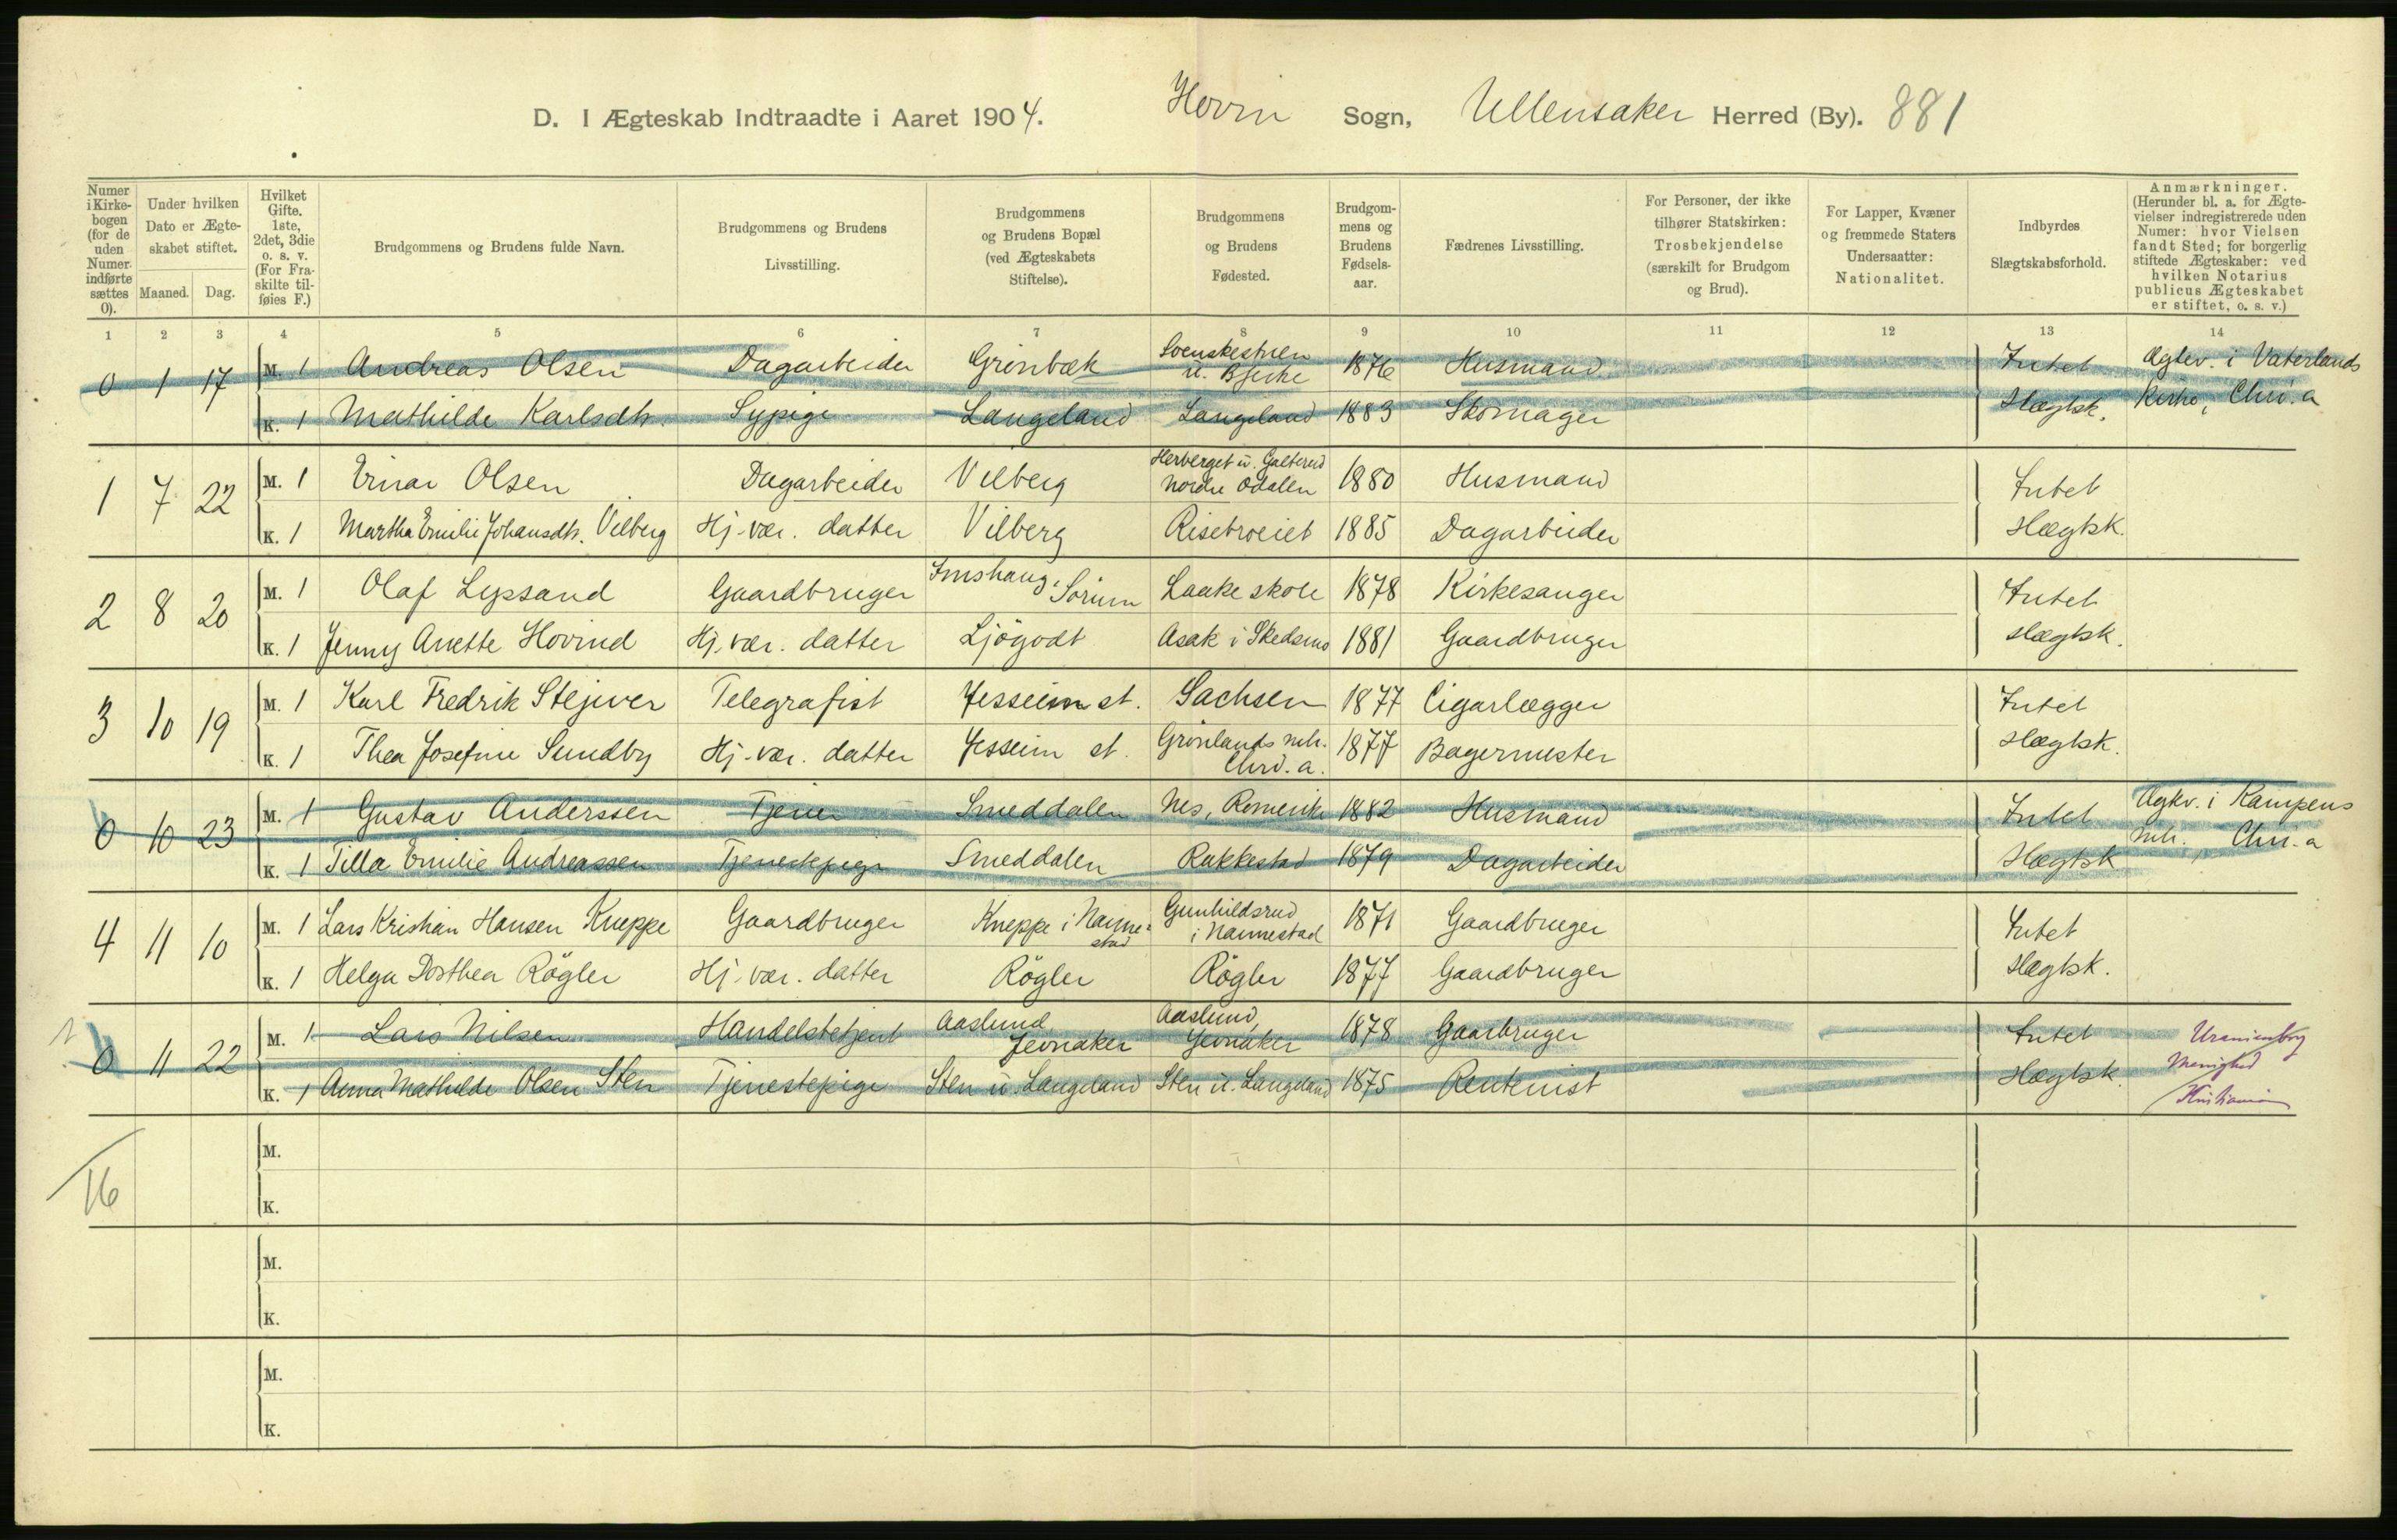 D. I Ægteskab Indtraadte i Aaret 1904. Hovin Sogn, Ullensaker Herred (By). 881
Numer i Kirkebogen (for de uden Numer indførte sættes 0).
Under hvilken Dato er Ægteskabet stiftet.
Maaned. Dag.
Hvilket Gifte. 1ste, 2det, 3die o. s. v. (For Fraskilte tilføies F.)
Brudgommens og Brudens fulde Navn.
Brudgommens og Brudens Livsstilling.
Brudgommens og Brudens Bopæl (ved Ægteskabets Stiftelse).
Brudgommens og Brudens Fødested.
Brudgommens og Brudens Fødselsaar.
Fædrenes Livsstilling.
For Personer, der ikke tilhører Statskirken: Trosbekjendelse (særskilt for Brudgom og Brud).
For Lapper, Kvæner og fremmede Staters Undersaatter: Nationalitet.
Indbyrdes Slægtskabsforhold.
Anmærkninger. (Herunder bl. a. for Ægtevielser indregistrerede uden Numer: hvor Vielsen fandt Sted; for borgerlig stiftede Ægteskaber: ved hvilken Notarius publicus Ægteskabet er stiftet, o. s. v.)
1 2 3 4 5 6 7 8 9 10 11 12 13 14
0 1 17 M. 1 Andreas Olsen Dagarbeider Grønbæk u. Bjerke 1876 Husmand Intet Ægtev. i Vaterlands
K. 1 Mathilde Karlsdtr. Sypige Langeland Langeland 1883 Skomager Slægtsk. Kirke, Chri.a
1 7 22 M. 1 Einar Olsen Dagarbeider Vilberg Herberget u. Galterud Nordre Odalen 1880 Husmand Intet
K. 1 Martha Emilie Johansdtr. Vilberg Hj. vær. datter Vilberg Risebroeiet 1885 Dagarbeider Slægtsk.
2 8 20 M. 1 Olaf Lysand Gaardbruger Imshaug, Sørum Laake skole 1878 Kirkesanger Intet
K. 1 Jenny Anette Hovind Hj. vær. datter Ljøgodt Asak i Skedsmo 1881 Gaardbruger Slægtsk.
3 10 19 M. 1 Karl Fredrik Stejver Telegrafist Jesseim st. Sachsen 1877 Cigarlægger Intet
K. 1 Thea Josefine Sundby Hj. vær. datter Jesseim st. Grønlands mh. Chri.a. 1877 Bagermester Slægtsk.
0 10 23 M. 1 Gustav Anderssen Tjener Smeddalen Nes, Romerike 1882 Husmand Intet Ægtev. i Kampens
K. 1 Tilla Emilie Andreassen Tjenestepige Smeddalen Rakkestad 1879 Dagarbeider Slægtsk mh., Chri.a
4 11 10 M. 1 Lars Kristian Hansen Kneppe Gaardbruger Kneppe i Nannestad Gunhildsrud i Nannestad 1871 Gaardbruger Intet
K. 1 Helga Dorthea Røgler Hj. vær. datter Røgler Røgler 1877 Gaardbruger Slægtsk.
0 11 22 M. 1 Lars Nilsen Handelsbetjent Aaslund, Jevnaker Aaslund, Jevnaker 1878 Gaarbruger Intet Uranienborg
K. 1 Anna Mathilde Olsen Sten Tjenestepige Sten u. Langeland Sten u. Langeland 1875 Rentenist Slægtsk. Menighed Kristiania
16
M.
K.
M.
K.
M.
K.